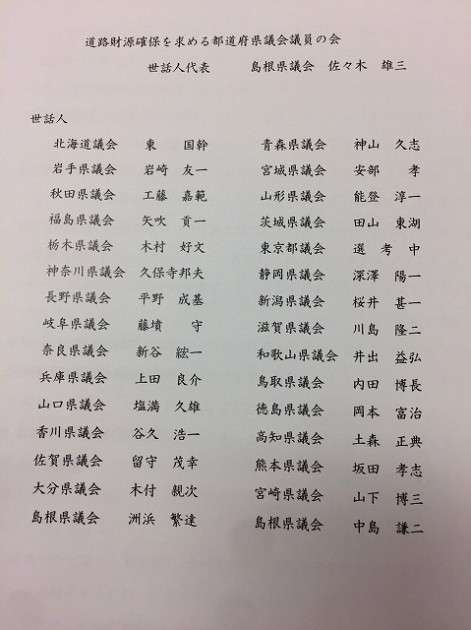 道路財源確保を求める都道府県議会議員の会
世話人代表　島根県議会　佐々木　雄三
世話人
北海道議会　東　国幹　青森県議会　神山　久志
岩手県議会　岩崎　友一　宮城県議会　安部　孝
秋田県議会　工藤　嘉範　山形県議会　能登　淳一
福島県議会　矢吹　貢一　茨城県議会　田山　東湖
栃木県議会　木村　好文　東京都議会　選　考　中
神奈川県議会　久保寺邦夫　静岡県議会　深澤　陽一
長野県議会　平野　成基　新潟県議会　桜井　甚一
岐阜県議会　藤墳　守　滋賀県議会　川島　隆二
奈良県議会　新谷　紘一　和歌山県議会　井出　益弘
兵庫県議会　上田　良介　鳥取県議会　内田　博長
山口県議会　塩満　久雄　徳島県議会　岡本　富治
香川県議会　谷久　浩一　高知県議会　土森　正典
佐賀県議会　留守　茂幸　熊本県議会　坂田　孝志
大分県議会　木付　親次　宮崎県議会　山下　博三
島根県議会　洲浜　繁達　島根県議会　中島　謙二